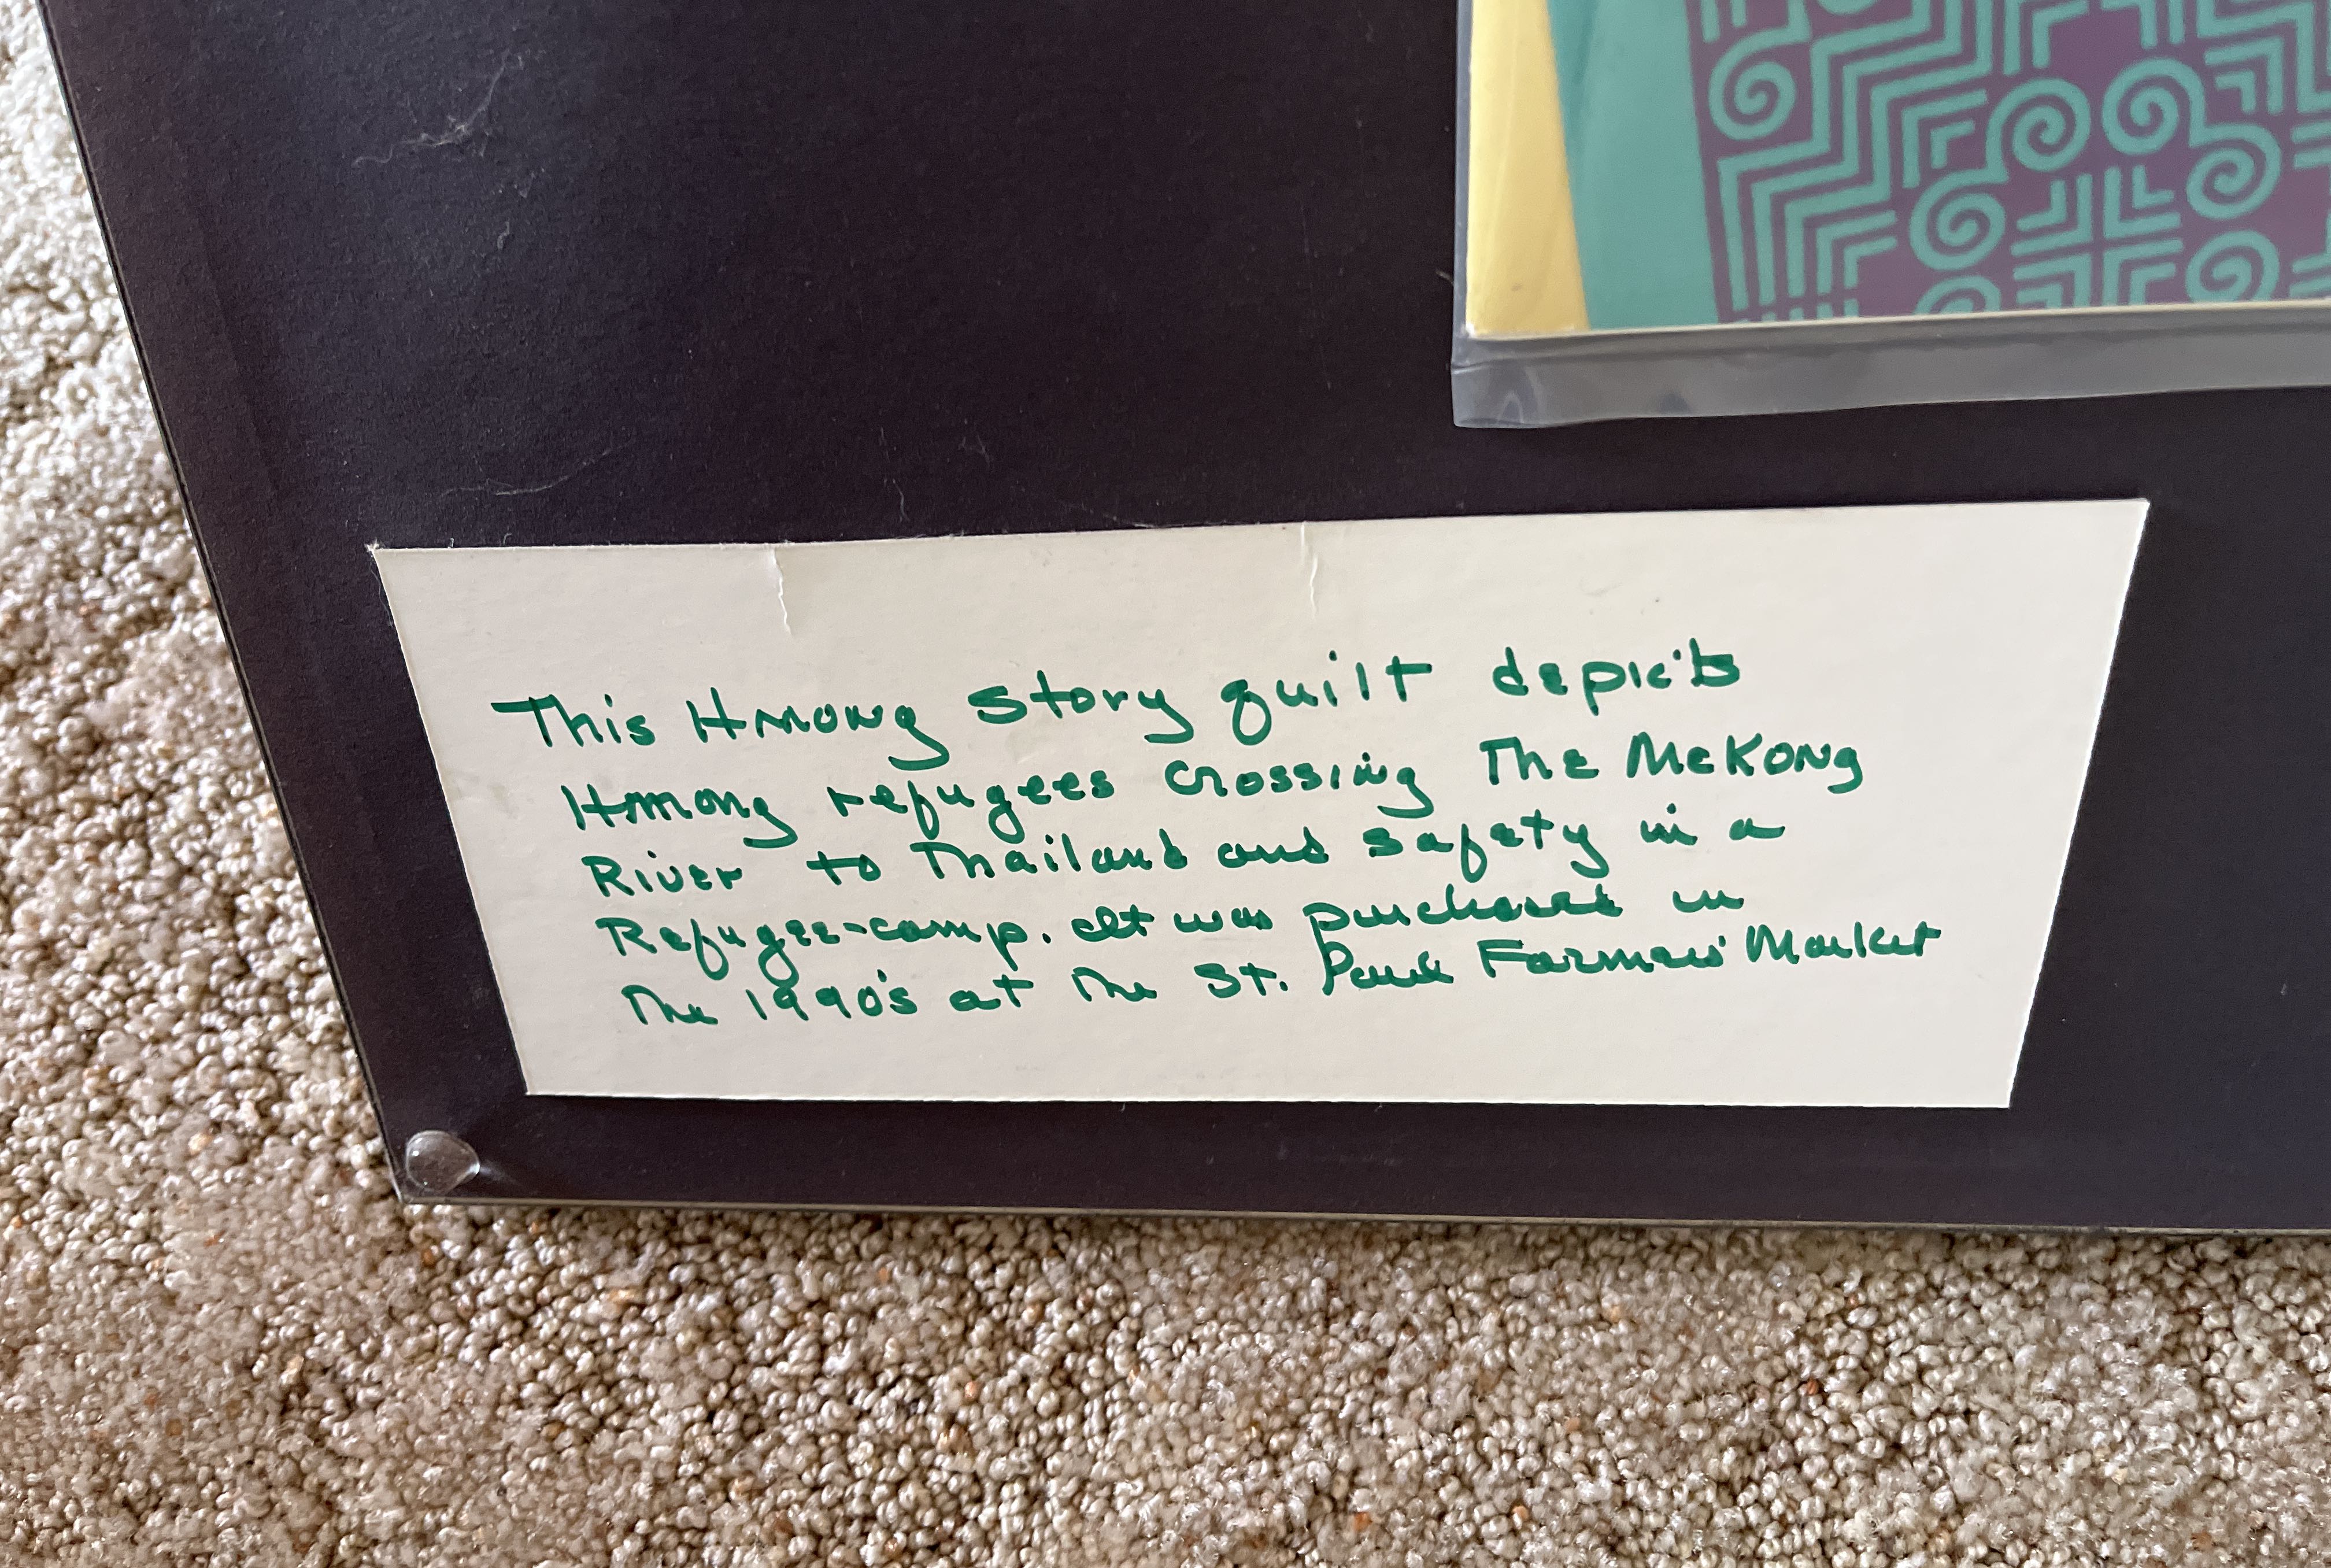 This Hmong story quilt depicts
Hmong refugees crossing The MeKong
River to Thailand and safety in a
Refugee-camp. It was purchased in
The 1990's at The St. Paul Farmers' Market